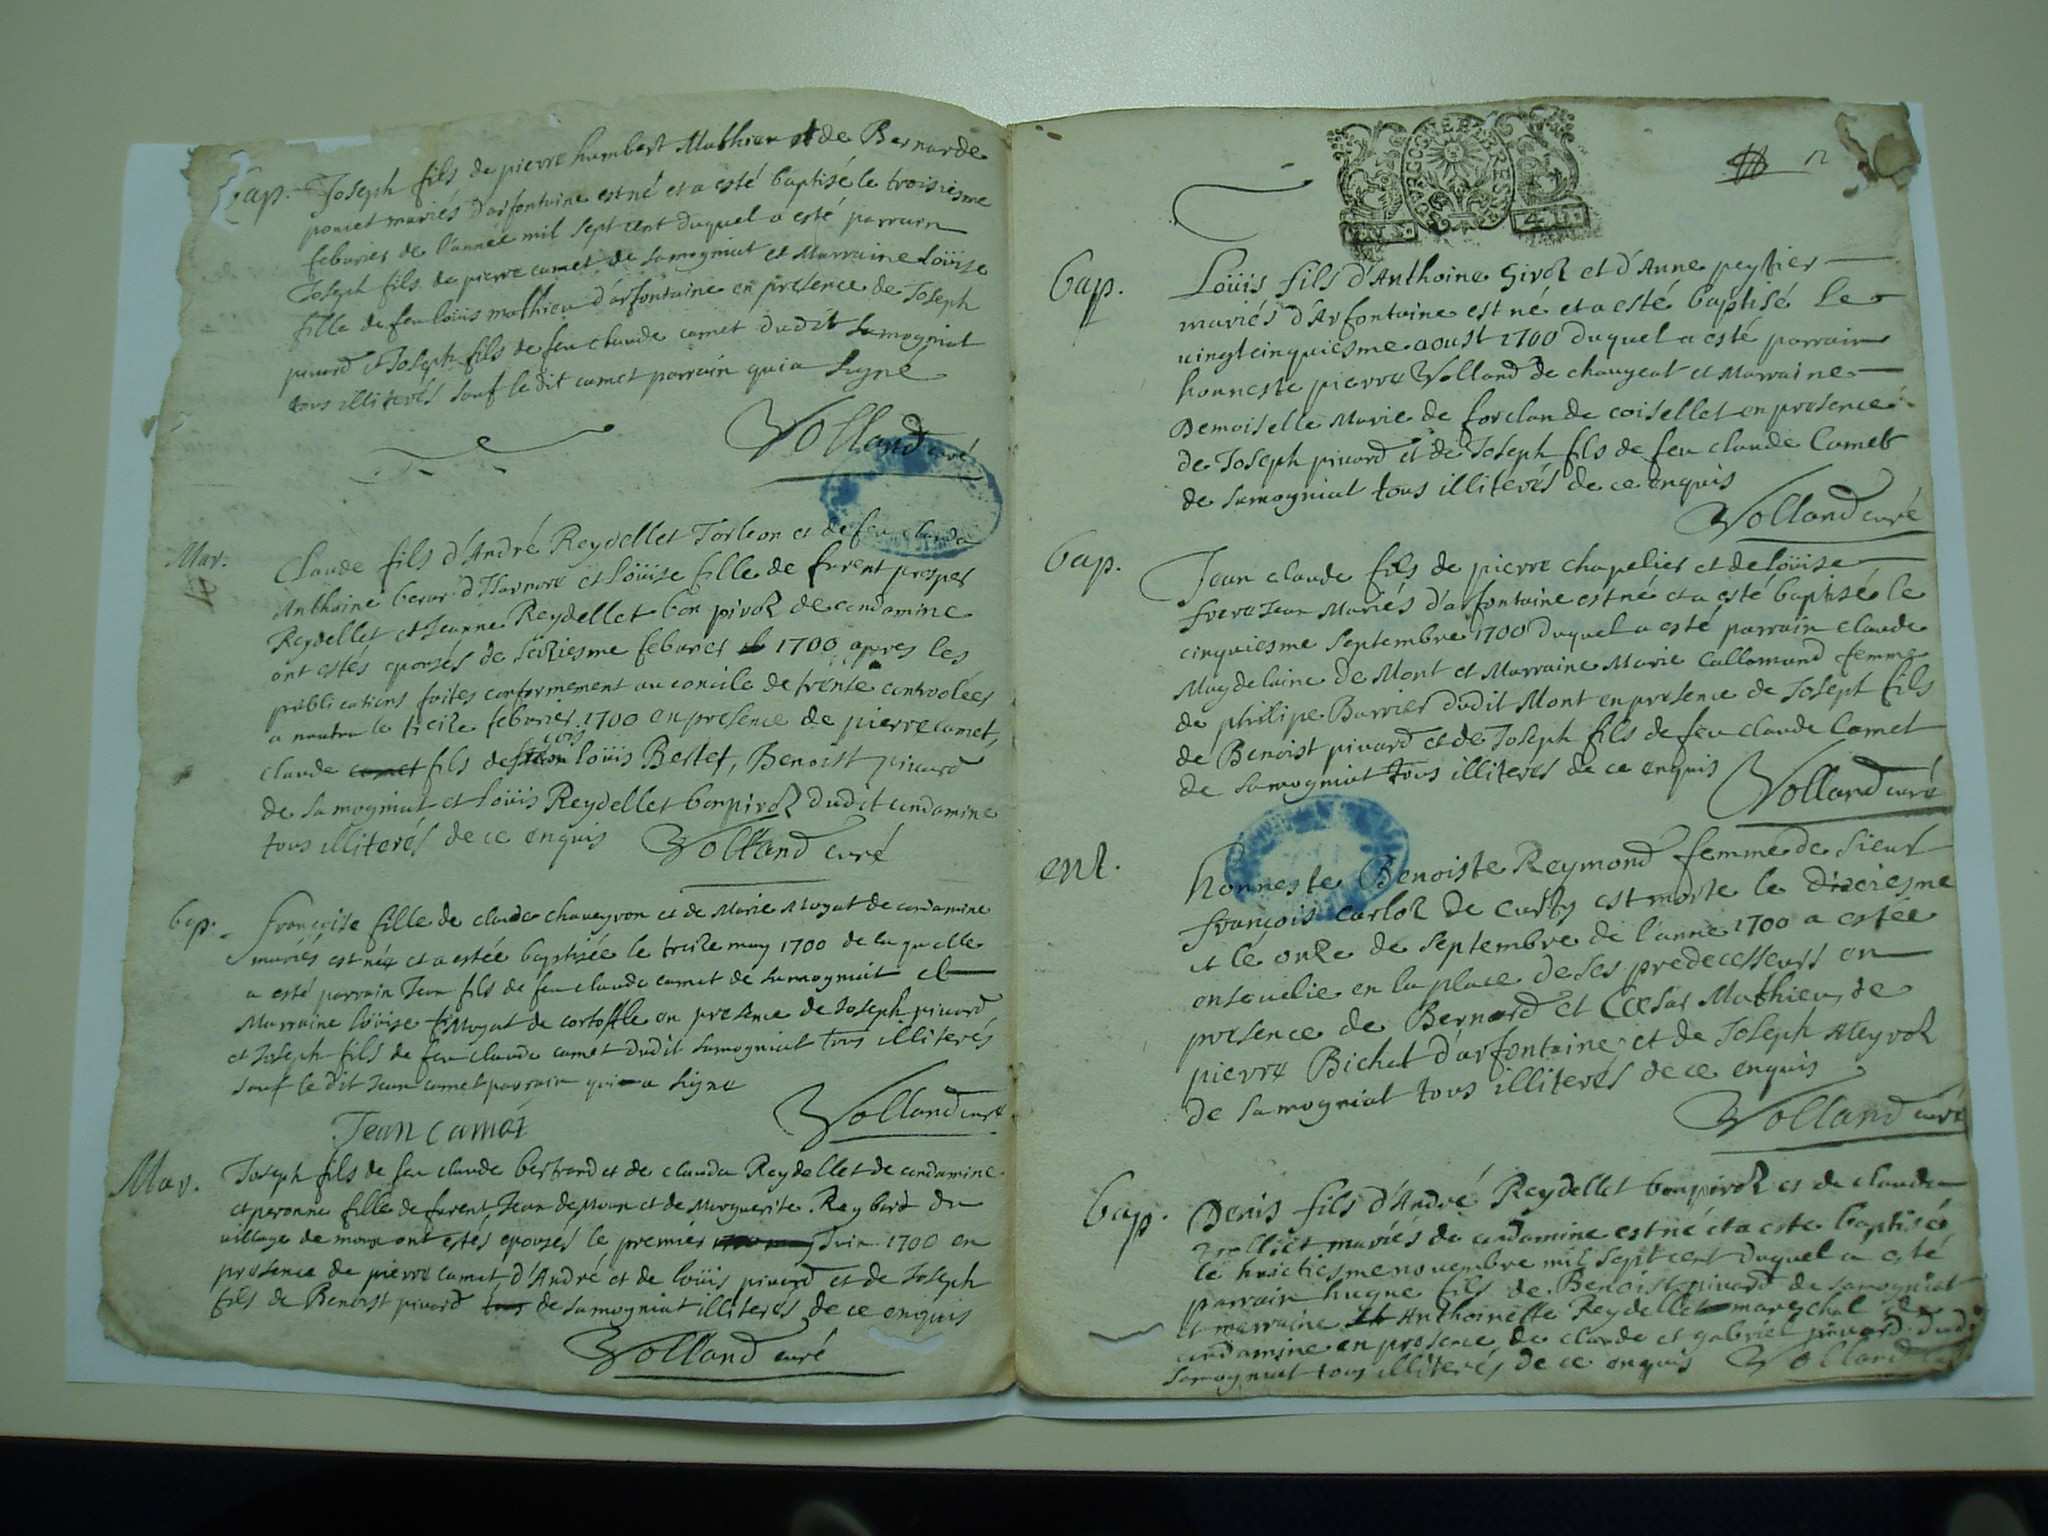 bap. Joseph fils de pierre humbert Mathieu et de Bernarde
poncet mariés d'arfontaine est né et a esté baptisé le troisiesme
febvrier de l'année mil sept cent duquel a esté parrain
Joseph fils de pierre camet de samogniat et Marraine Loüise
fille de feu loüis mathieu d'arfontaine en presence de Joseph
pivard et Joseph fils de feu claude camet dudit samogniat
tous illiterés sauf le dit camet parrain qui a signe
Volland curé
Mar. Claude fils d'André Reydellet Tarleon et de feu clauda
Anthoine d'Harmore et Loüise fille de furent prosper
Reydellet et Jeanne Reydellet bon pivoz de condamine
ont estés epousés le seiziesme febvrier 1700 apres les
publications faites conformement au concile de trente controolées
a nantua le treize febvrier 1700 en presence de pierre camet,
claude fils de loüis Bertet, Benoist pivard
de samogniat et Loüis Reydellet bonpivoz dudit condamine
tous illiterés de ce enquis Volland curé
bap. françoise fille de claude chaveyron et de Marie Moyat de condamine
mariés est née et a estée baptisée le treize may 1700 de laquelle
a esté parrain Jean fils de feu claude camet de samogniat et
Marraine loüise Moyat de en presence de Joseph pivard
et Joseph fils de feu claude camet dudit samogniat tous illiterés
sauf le dit Jean camet parrain qui a signe
Jean camet Volland curé
Mar. Joseph fils de feu claude bertrand et de clauda Reydellet de condamine
et peronne fille de furent Jean de Moux et de Marguerite Reybard du
village de moux ont estés epousés le premier Juin 1700 en
presence de pierre camet, d'André et de loüis pivard et de Joseph
fils de Benoist pivard de samogniat illiterés de ce enquis
Volland curé
BOURGOGNE ET BRESSE
12
bap. Loüis fils d'Anthoine Giroz et d'Anne peytier
mariés d'Arfontaine est né et a esté baptisé le
vingtcinquiesme aoust 1700 duquel a esté parrain
honneste pierre Volland de changeat et Marraine
Demoiselle Marie de forclan de coisellet en presence
de Joseph pivard et de Joseph fils de feu claude Camet
de samogniat tous illiterés de ce enquis
Volland curé
bap. Jean claude fils de pierre chapelier et de loüise
frere Jean Mariés d'arfontaine est né et a esté baptisé le
cinquiesme septembre 1700 duquel a esté parrain claude
Maydelaine de Mont et Marraine Marie Callamand femme
de philipe Burrier dudit Mont en presence de Joseph fils
de Benoist pivard et de Joseph fils de feu claude Camet
de samogniat tous illiterés de ce enquis Volland curé
ent. honneste Benoiste Reymond femme de sieur
françois carloz de est morte le dixiesme
et le onze de septembre de l'anné 1700 a estée
ensevelie en la place de ses predecesseurs en
presence de Bernard et Cæsar Mathieu, de
pierre Bichat d'arfontaine et de Joseph Meyroz
de samogniat tous illiteres de ce enquis
Volland curé
bap. Denis fils d'André Reydellet bonpivoz et de clauda
mariés de condamine est né et a esté baptisé
le huictiesme novembre mil sept cent duquel a esté
parrain hugue fils de Benoist pivard de samogniat
et marraine Anthoinette Reydellet mareschal de
condamine en presence de claude et gabriel pivard dudit
samogniat tous illiterés de ce enquis Volland curé